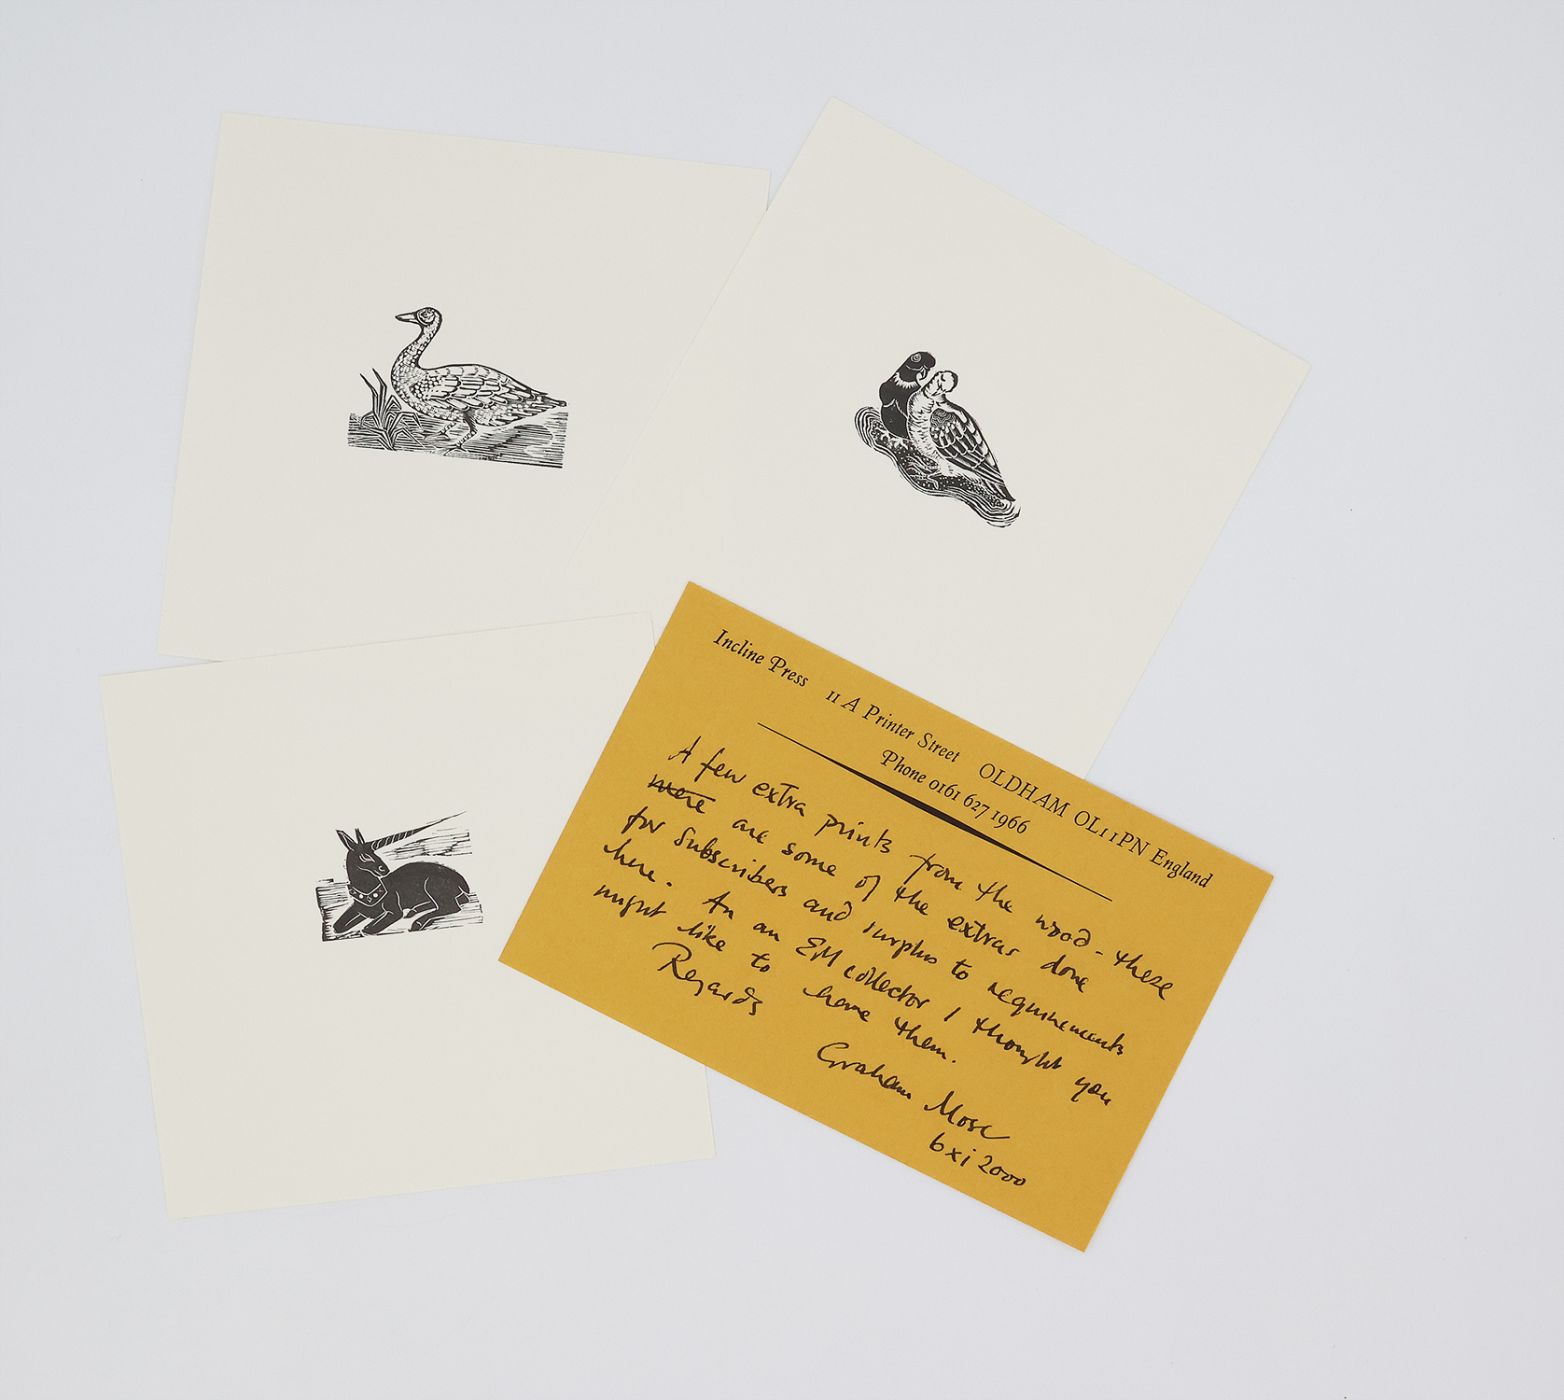 Incline Press 11 A Printer Street OLDHAM OL11PN England
Phone 0161 627 1966
A few extra prints from the wood - these
were are some of the extras done
for subscribers and surplus to requirements
here. An an EM collector I thought you
might like to have them.
Regards
Graham Moss
6 xi 2000